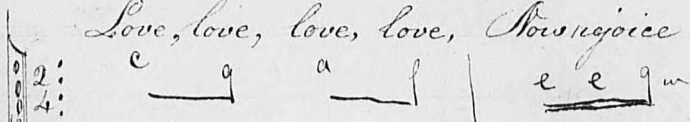 Love, love, love, love, Now rejoice
2: c g a f e e g
4: